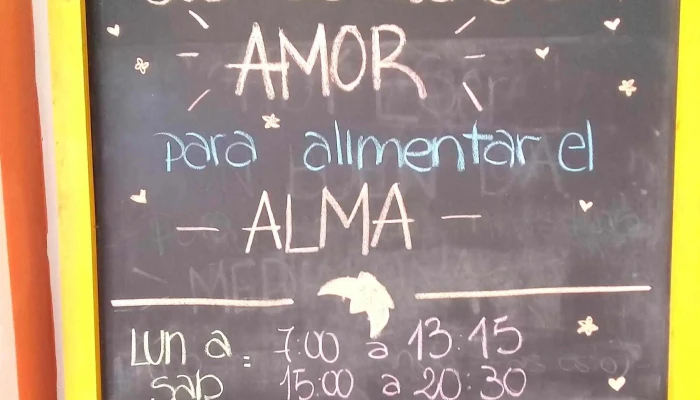 AMOR
para alimentar el
- ALMA -
LUN a : 7:00 a 13:15
sab 15:00 a 20:30